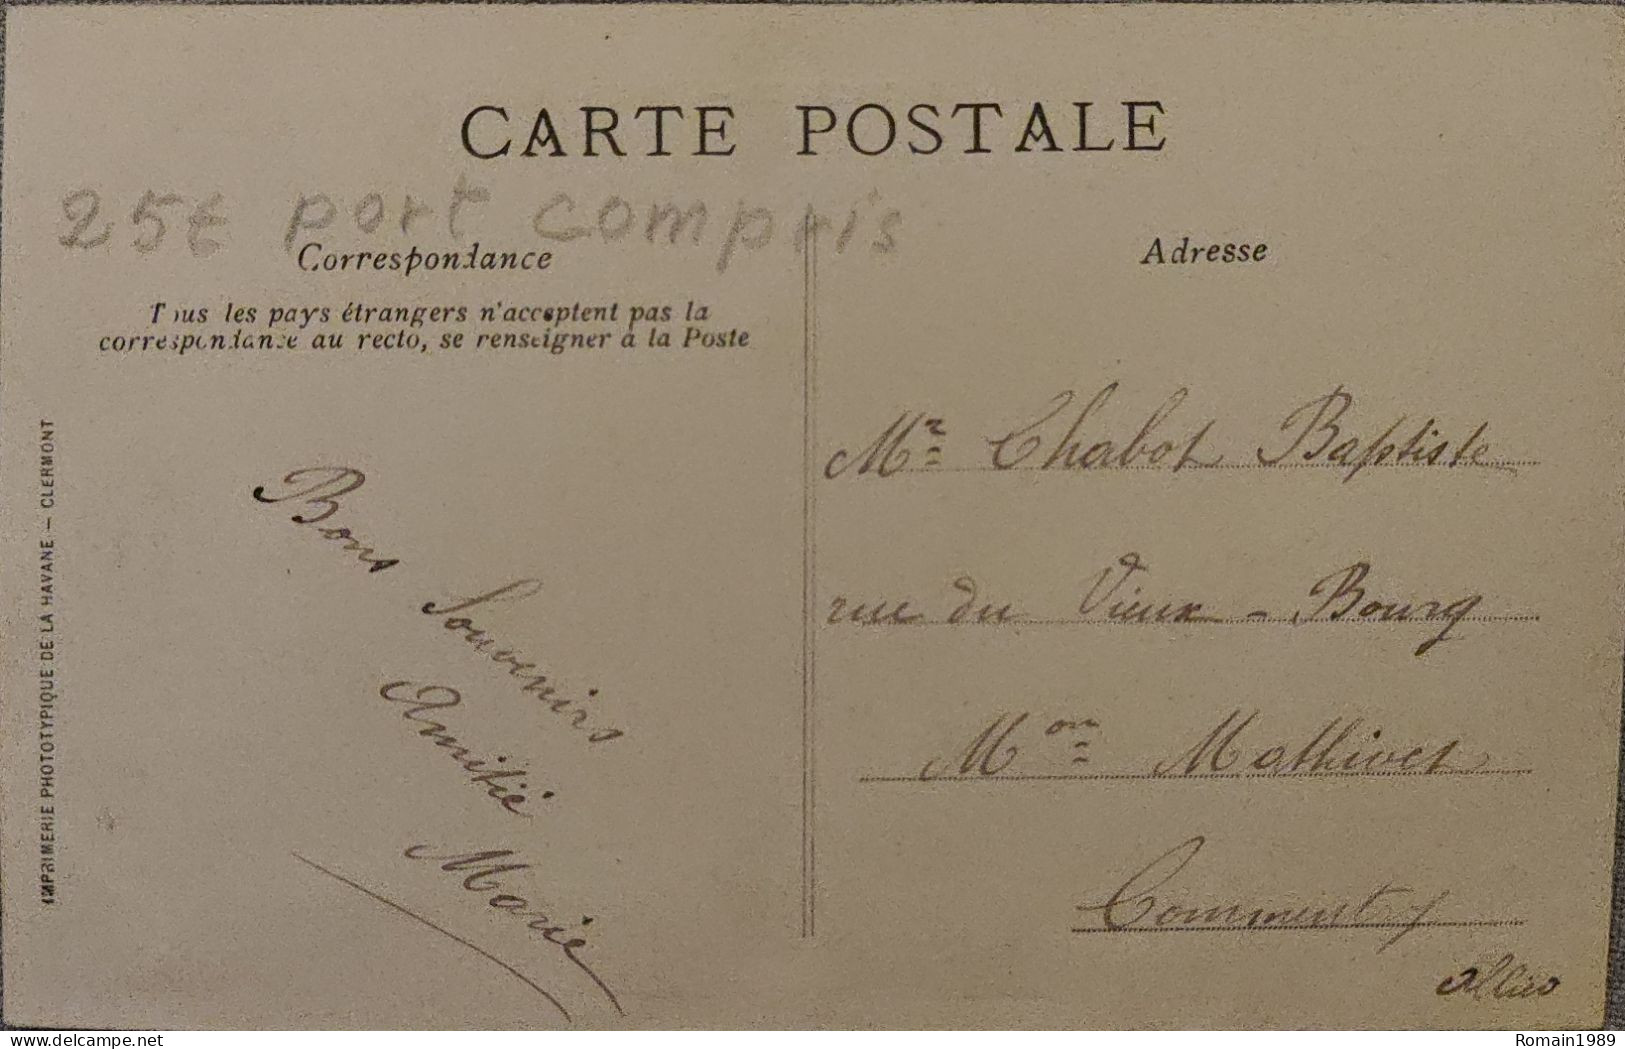 CARTE POSTALE
25€ port compris
Correspondance
Tous les pays étrangers n'acceptent pas la
correspondance au recto, se renseigner à la Poste
IMPRIMERIE PHOTOTYPIQUE DE LA HAVANE – CLERMONT
Bons
Souvenirs
Amitié
Marie
Adresse
Mr Chabot Baptiste
rue du Vieux - Bourg
Mon Mathivet
Commentry
Allier
delcampe.net
Romain1989